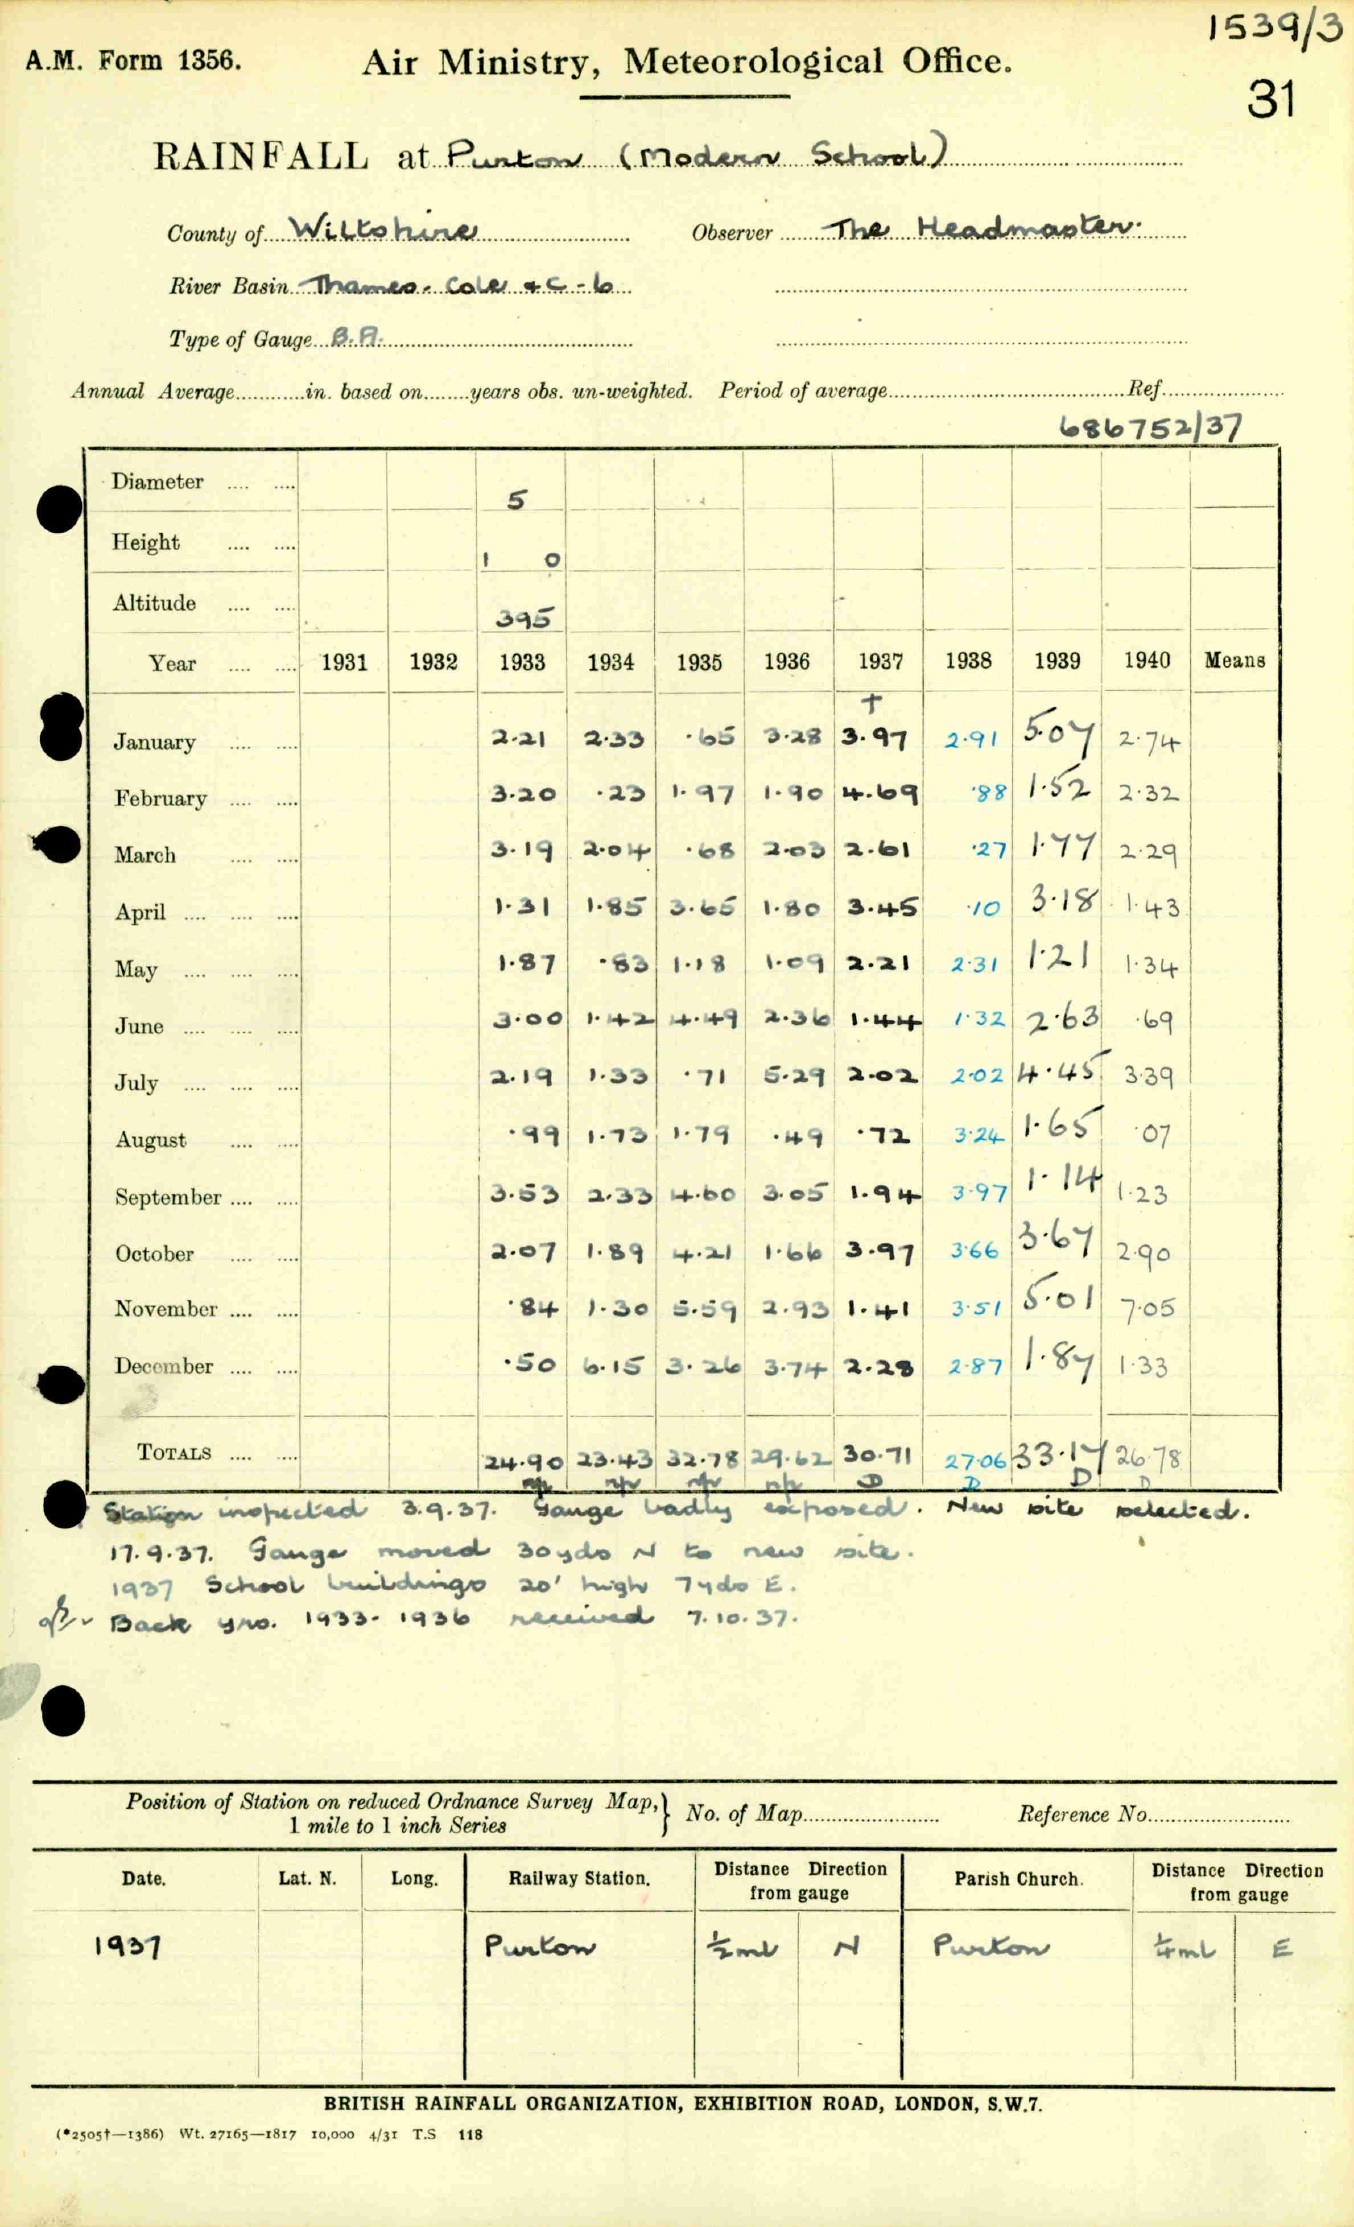 1539/3
A.M. Form 1356. Air Ministry, Meteorological Office.
31
RAINFALL at Purton (Modern School)
County of Wiltshire Observer The Headmaster.
River Basin Thames. Cole &c - 6
Type of Gauge B.R.
Annual Average............in. based on........years obs. un-weighted. Period of average............Ref............
686752/37
Diameter .... .... 5
Height .... .... 1 0
Altitude .... .... 395
Year .... .... 1931 1932 1933 1934 1935 1936 1937 1938 1939 1940 Means
†
January .... .... 2.21 2.33 .65 3.28 3.97 2.91 5.07 2.74
February .... .... 3.20 .23 1.97 1.90 4.69 .88 1.52 2.32
March .... .... 3.19 2.04 .68 2.03 2.61 .27 1.77 2.29
April .... .... .... 1.31 1.85 3.65 1.80 3.45 .10 3.18 1.43
May .... .... .... 1.87 .83 1.18 1.09 2.21 2.31 1.21 1.34
June .... .... .... 3.00 1.42 4.49 2.36 1.44 1.32 2.63 .69
July .... .... .... 2.19 1.33 .71 5.29 2.02 2.02 4.45 3.39
August .... .... .99 1.73 1.79 .49 .72 3.24 1.65 .07
September .... .... 3.53 2.33 4.60 3.05 1.94 3.97 1.14 1.23
October .... .... 2.07 1.89 4.21 1.66 3.97 3.66 3.67 2.90
November .... .... .84 1.30 5.59 2.93 1.41 3.51 5.01 7.05
December .... .... .50 6.15 3.26 3.74 2.28 2.87 1.87 1.33
TOTALS .... .... 24.90 23.43 32.78 29.62 30.71 27.06 33.17 26.78
D D D D
Station inspected 3.9.37. Gauge badly exposed. New site selected.
17.9.37. Gauge moved 30yds N to new site.
1937 School buildings 20' high 7yds E.
Back yrs. 1933-1936 received 7.10.37.
Position of Station on reduced Ordnance Survey Map,
1 mile to 1 inch Series } No. of Map............ Reference No............
Date. Lat. N. Long. Railway Station. Distance Direction from gauge Parish Church. Distance Direction from gauge
1937 Purton ½ml N Purton ¼ml E
BRITISH RAINFALL ORGANIZATION, EXHIBITION ROAD, LONDON, S.W.7.
(*2505†—1386) Wt. 27165—1817 10,000 4/31 T.S 118